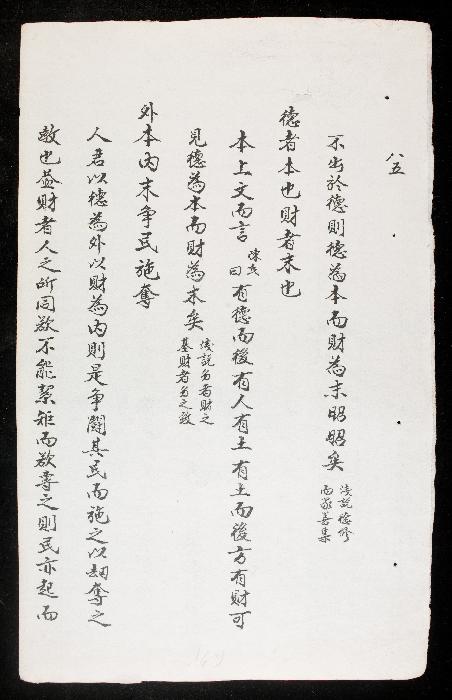 八五
不出於德則德為本而財為末昭昭矣
淺說德修
而眾善集
德者本也財者末也
本上文而言陳氏曰有德而後有人有土有土而後方有財可
見德為本而財為末矣
淺說多者財之
基財者多之效
外本內末爭民施奪
人君以德為外以財為內則是爭鬪其民而施之以刼奪之
教也蓋財者人之所同欲不能絜矩而欲專之則民亦起而